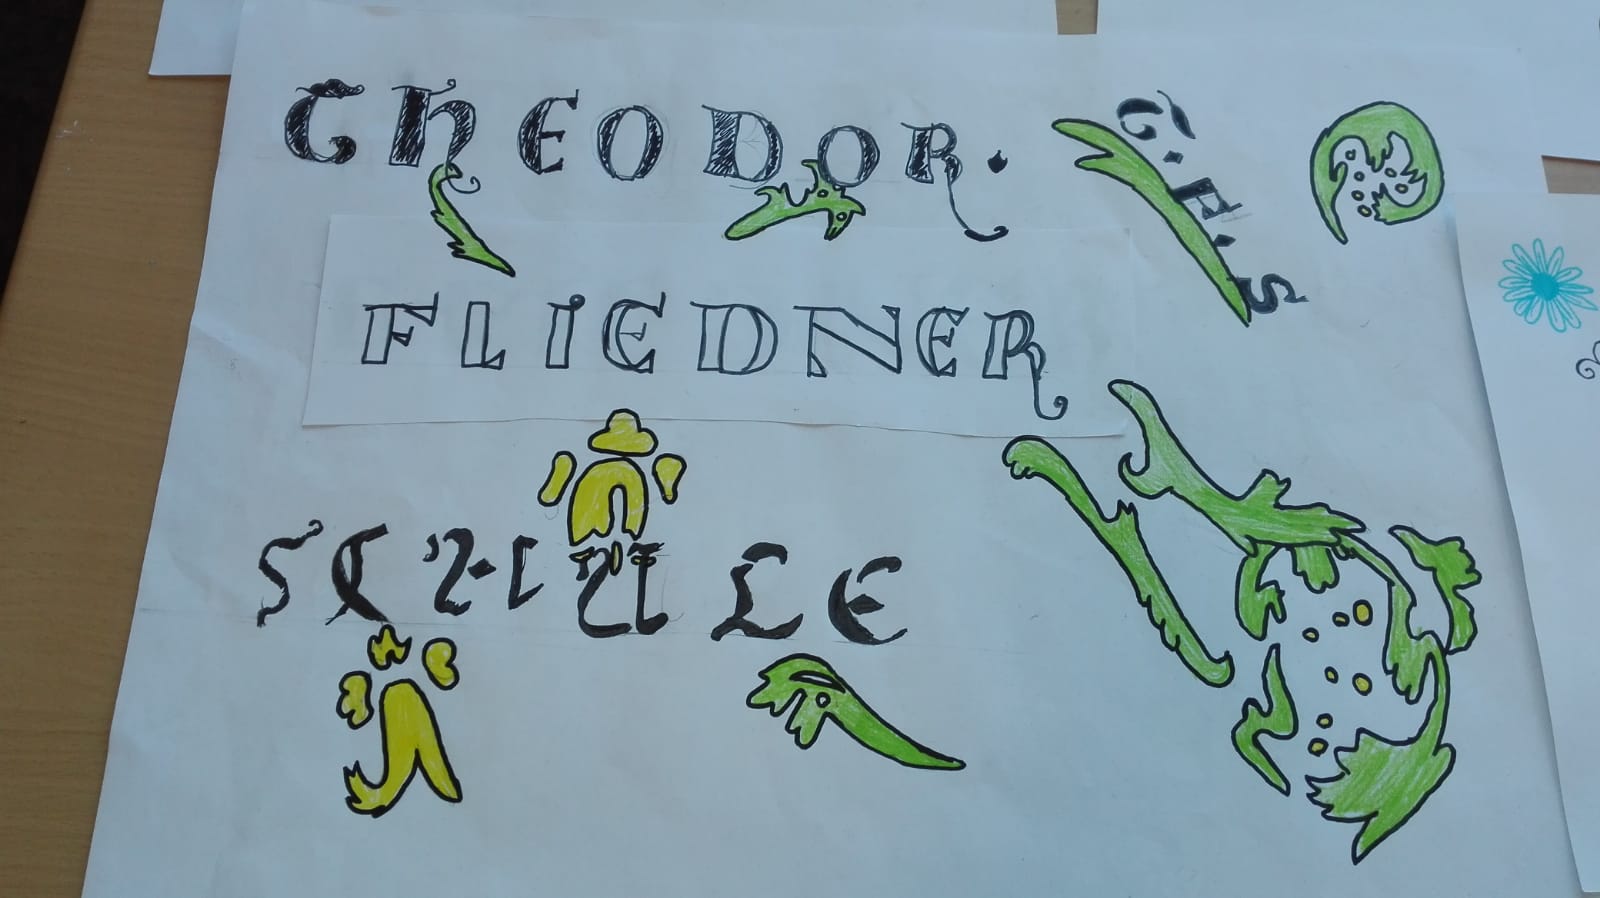 THEODOR.
T.F.S
FLIEDNER
SCHULE